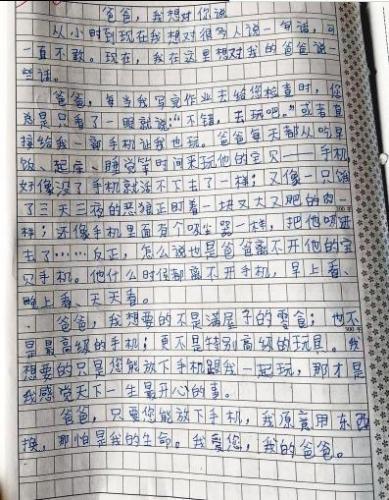 爸爸，我想对你说
从小时到现在我想对很多人说一句话，可
一直不敢。现在，我在这里想对我的爸爸说一
些话。
爸爸，每当我写完作业去给您检查时，你
总是只看了一眼就说："不错，去玩吧。"或者直
接给我一部手机让我也玩。爸爸每天都从吃早
饭、起床、睡觉等时间来玩他的宝贝——手机，
好像没了手机就活不下去了一样；又像一只饿
了三天三夜的恶狼正盯着一块又大又肥的肉一
样；还像手机里面有个吸尘器一样，把他吸进
去了……反正，怎么说也是爸爸离不开他的宝
贝手机。他什么时候都离不开手机，早上看、
晚上看、天天看。
爸爸，我想要的不是满屋子的零食；也不
是最高级的手机；更不是特别高级的玩具。我
想要的只是您能放下手机跟我一起玩，那才是
我感觉天下一生最开心的事。
爸爸，只要您能放下手机，我原意用东西
换，那怕是我的生命。我爱您，我的爸爸。
300字